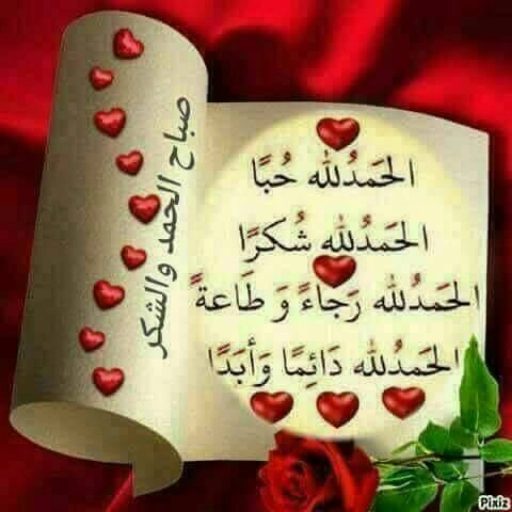 صباح الحمد والشكر
الحَمدُلله حُبًا
الحَمدُلله شُكرًا
الحَمدُلله رَجاءً وَ طَاعةً
الحَمدُلله دَائِمًا وَأبَدًا
Pixiz